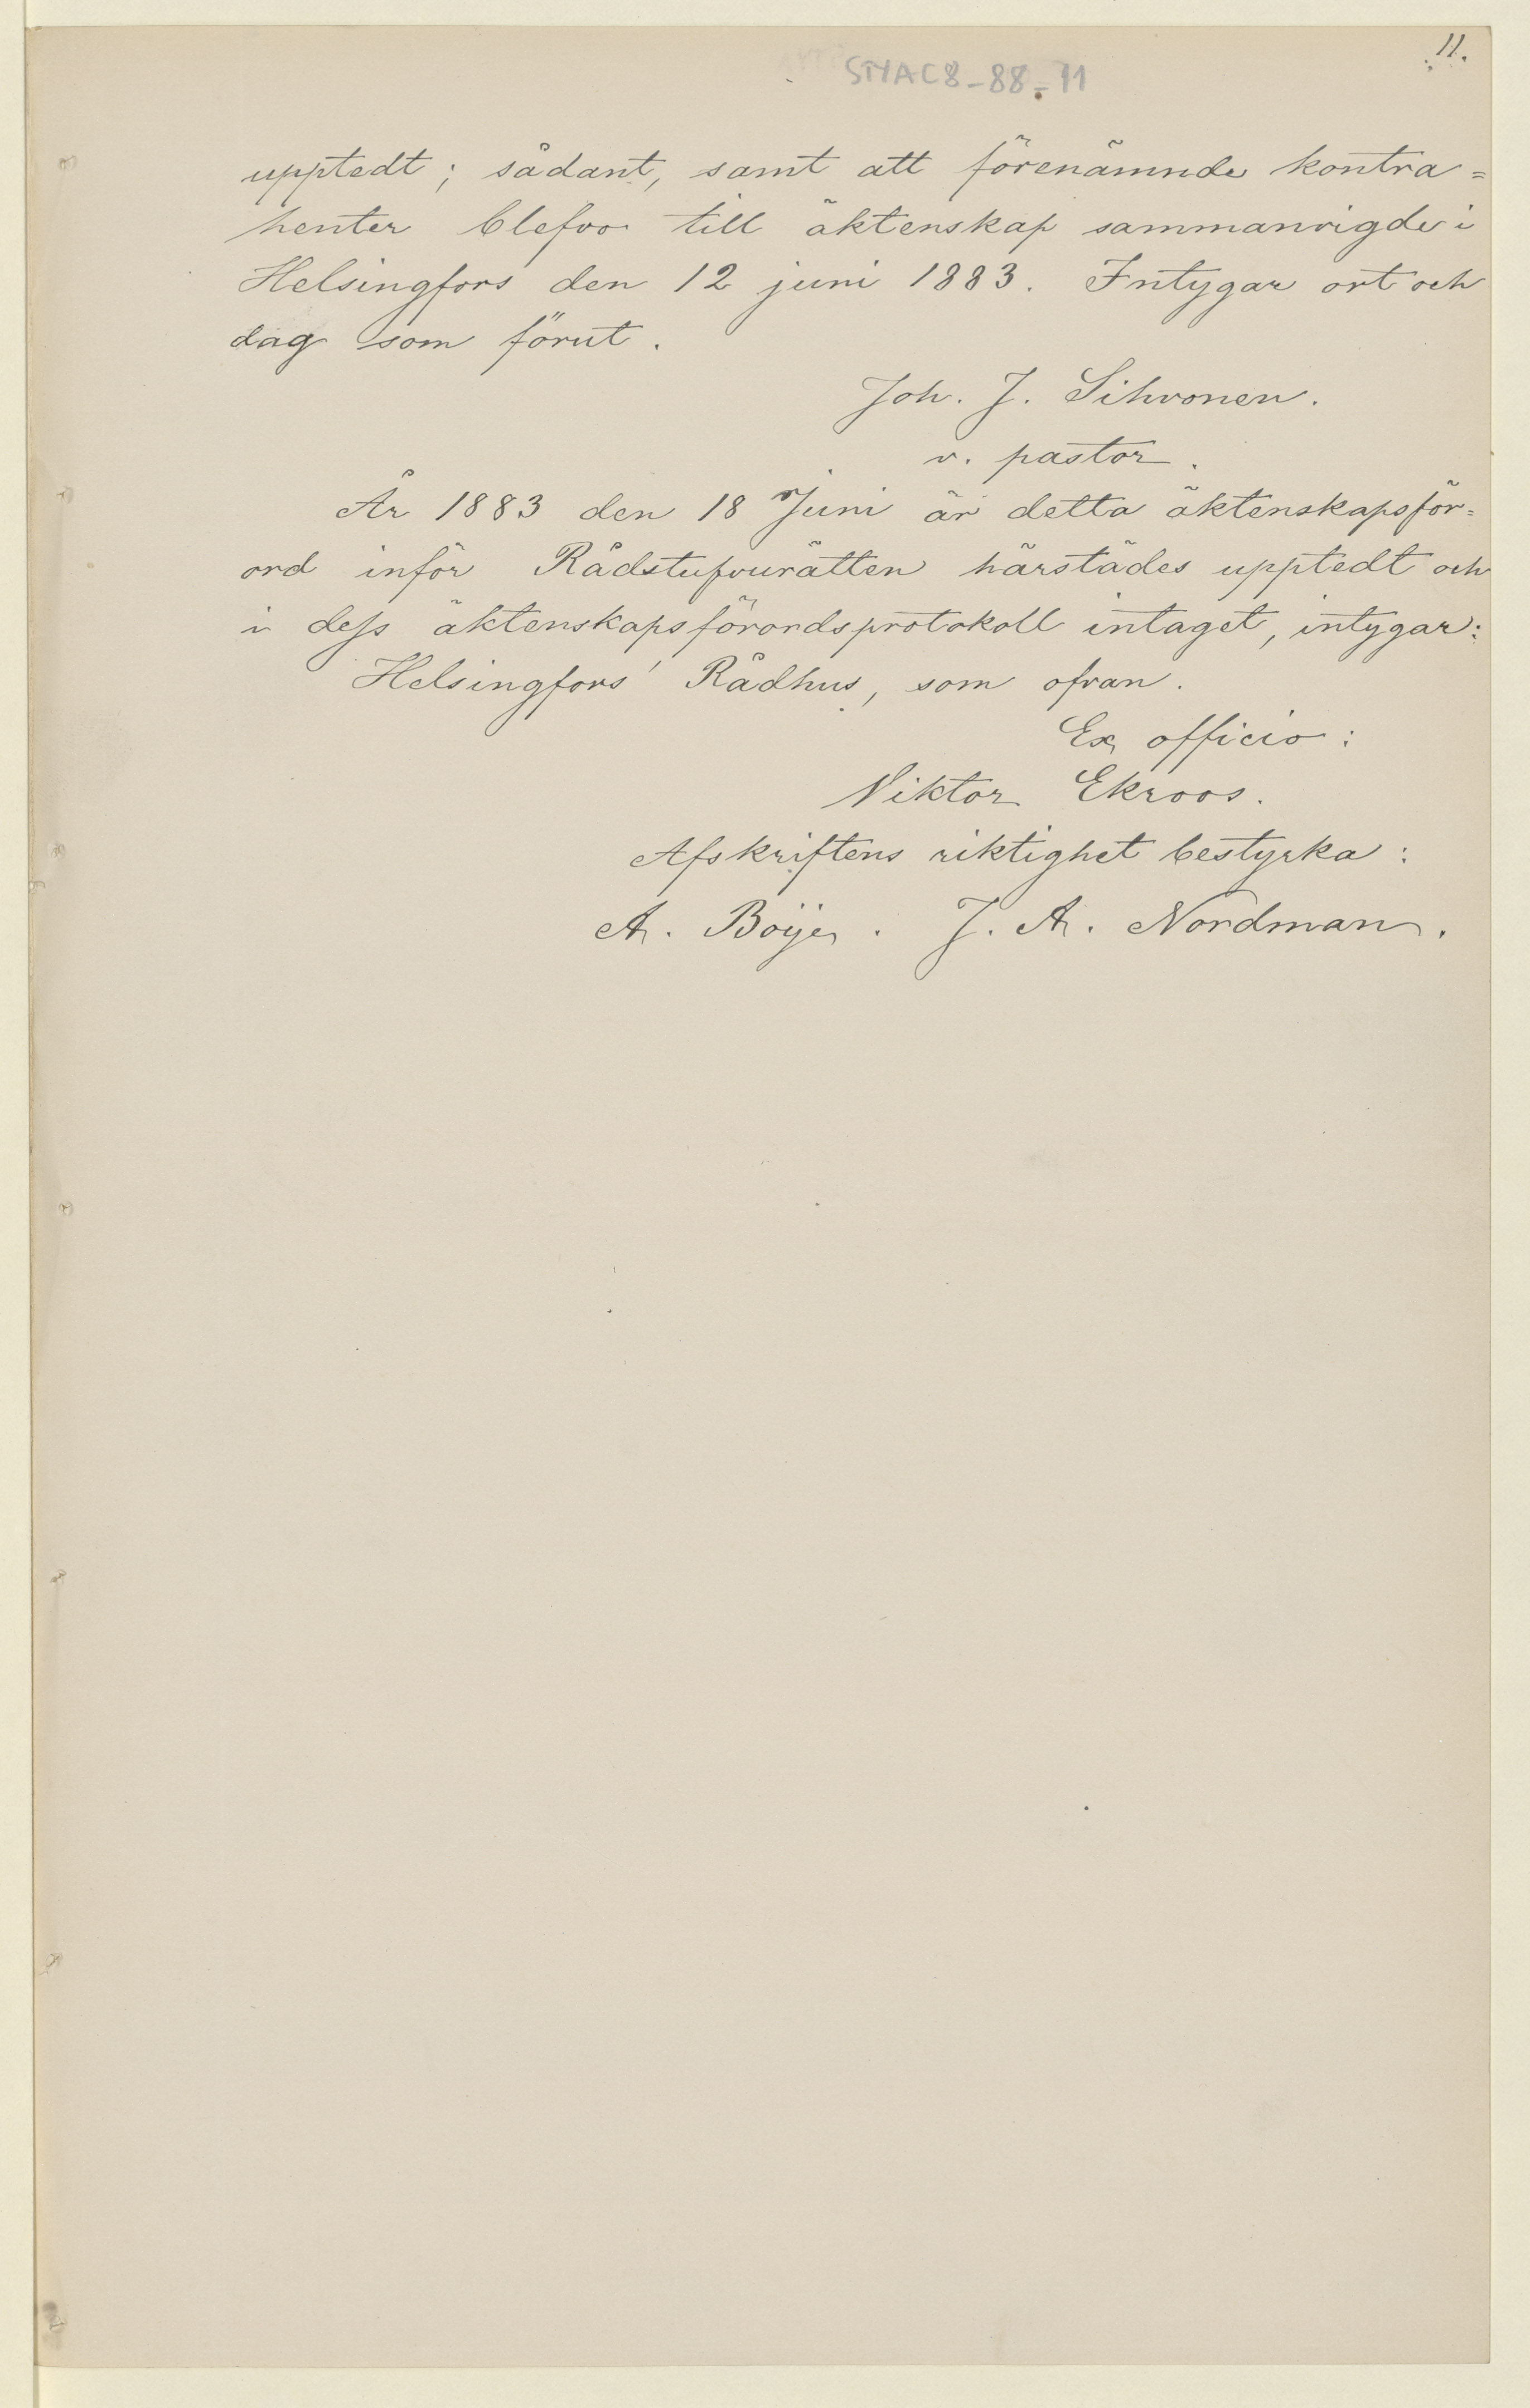 11.
STYAC8-88-11
upptedt; sådant, samt att förenämnde kontra=
henter blefvo till äktenskap sammanvigde i
Helsingfors den 12 juni 1883. Intygar ort och
dag som förut.
Joh. J. Sihvonen.
v. pastor.
År 1883 den 18 Juni är detta äktenskapsför=
ord inför Rådstufvurätten härstädes upptedt och
i dess äktenskapsförordsprotokoll intaget, intygar:
Helsingfors Rådhus, som ofvan.
Ex officio:
Viktor Ekroos.
Afskriftens riktighet bestyrka:
A. Boije. J. A. Nordman.